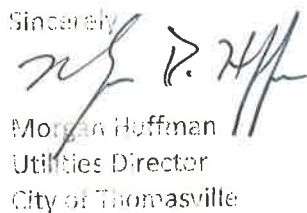 Sincerely
Morgan Huffman
Utilities Director
City of Thomasville